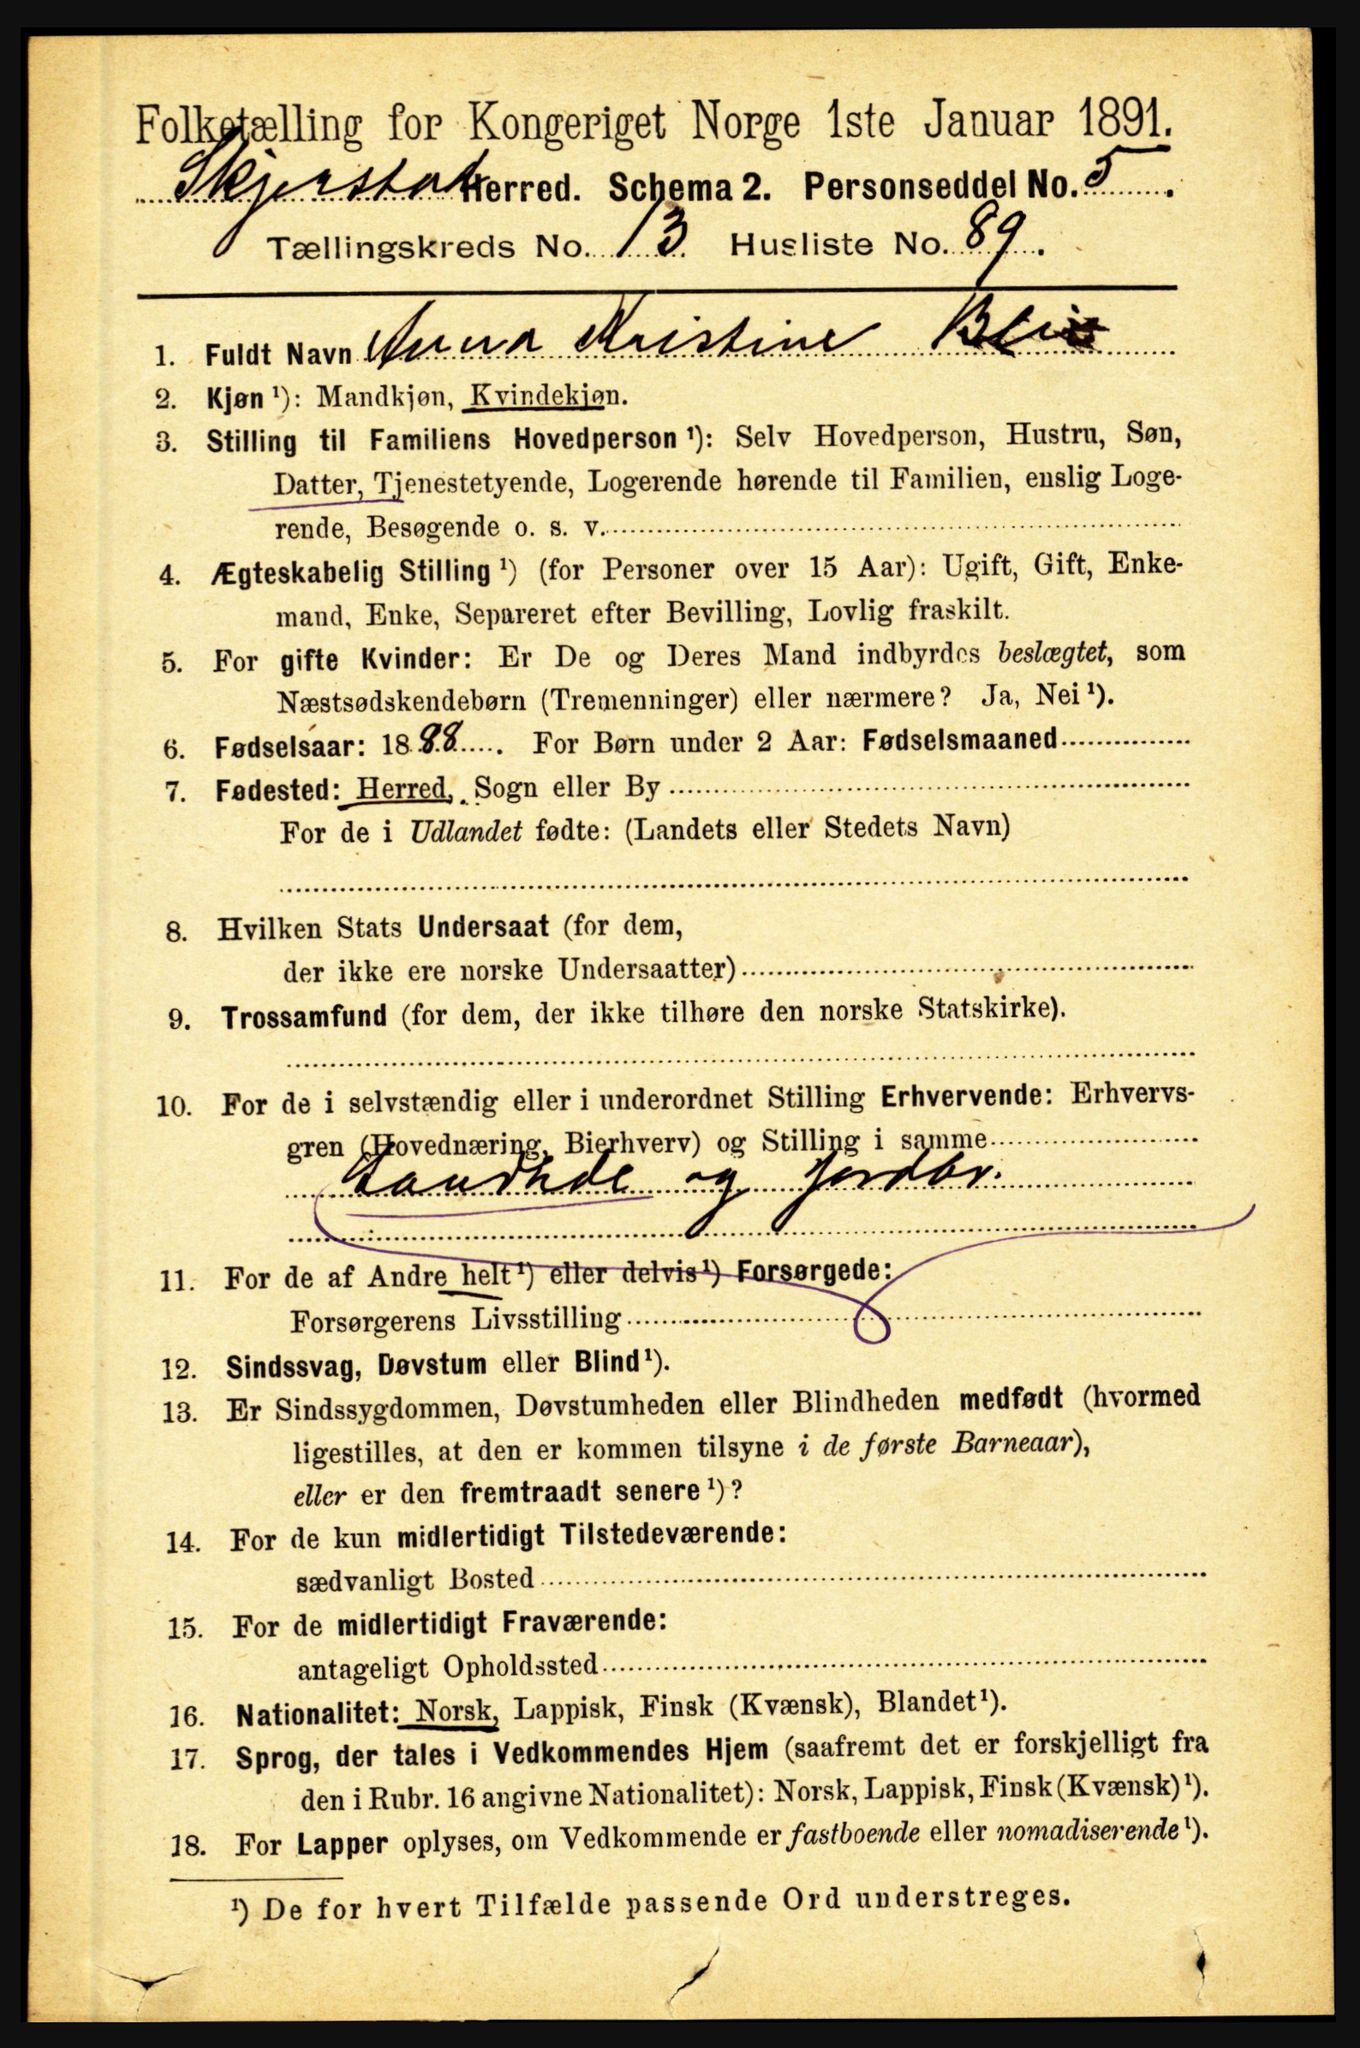 Folketælling for Kongeriget Norge 1ste Januar 1891.
Skjerstad Herred. Schema 2. Personseddel No. 5.
Tællingskreds No. 13 Husliste No. 89.
1. Fuldt Navn Anna Kristine
2. Kjøn ¹): Mandkjøn, Kvindekjøn.
3. Stilling til Familiens Hovedperson ¹): Selv Hovedperson, Hustru, Søn,
Datter, Tjenestetyende, Logerende hørende til Familien, enslig Loge-
rende, Besøgende o. s. v.
4. Ægteskabelig Stilling ¹) (for Personer over 15 Aar): Ugift, Gift, Enke-
mand, Enke, Separeret efter Bevilling, Lovlig fraskilt.
5. For gifte Kvinder: Er De og Deres Mand indbyrdes beslægtet, som
Næstsødskendebørn (Tremenninger) eller nærmere? Ja, Nei ¹).
6. Fødselsaar: 1888. For Børn under 2 Aar: Fødselsmaaned
7. Fødested: Herred, Sogn eller By
For de i Udlandet fødte: (Landets eller Stedets Navn)
8. Hvilken Stats Undersaat (for dem,
der ikke ere norske Undersaatter)
9. Trossamfund (for dem, der ikke tilhøre den norske Statskirke).
10. For de i selvstændig eller i underordnet Stilling Erhvervende: Erhvervs-
gren (Hovednæring, Bierhverv) og Stilling i samme
og jordbr.
11. For de af Andre helt ¹) eller delvis ¹) Forsørgede:
Forsørgerens Livsstilling
12. Sindssvag, Døvstum eller Blind ¹).
13. Er Sindssygdommen, Døvstumheden eller Blindheden medfødt (hvormed
ligestilles, at den er kommen tilsyne i de første Barneaar),
eller er den fremtraadt senere ¹)?
14. For de kun midlertidigt Tilstedeværende:
sædvanligt Bosted
15. For de midlertidigt Fraværende:
antageligt Opholdssted
16. Nationalitet: Norsk, Lappisk, Finsk (Kvænsk), Blandet ¹).
17. Sprog, der tales i Vedkommendes Hjem (saafremt det er forskjelligt fra
den i Rubr. 16 angivne Nationalitet): Norsk, Lappisk, Finsk (Kvænsk) ¹).
18. For Lapper oplyses, om Vedkommende er fastboende eller nomadiserende ¹).
¹) De for hvert Tilfælde passende Ord understreges.